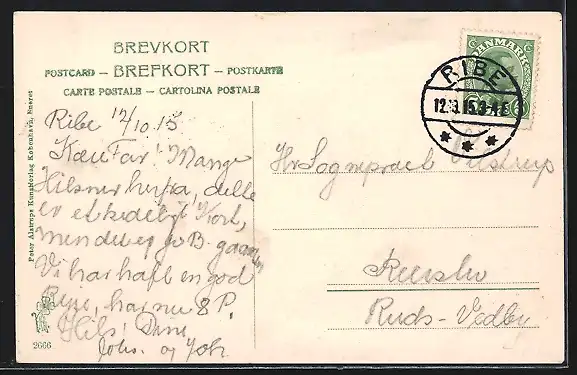 BREVKORT
POSTCARD — BREFKORT — POSTKARTE
CARTE POSTALE — CARTOLINA POSTALE
Peter Alstrups Kunstforlag København, Eneret
DANMARK
RIBE
Ribe 12/10 15
Kære Far! Mange
Hilsner herfra, dette
er et kedeligt Kort,
men det er jo B. gaarden
Vi har haft en god
Rejse, har nu 8 P.
Hils! Dine
Johs. og Joh
Hr Sognepræst
Reerslev
Ruds-Vedby
2666